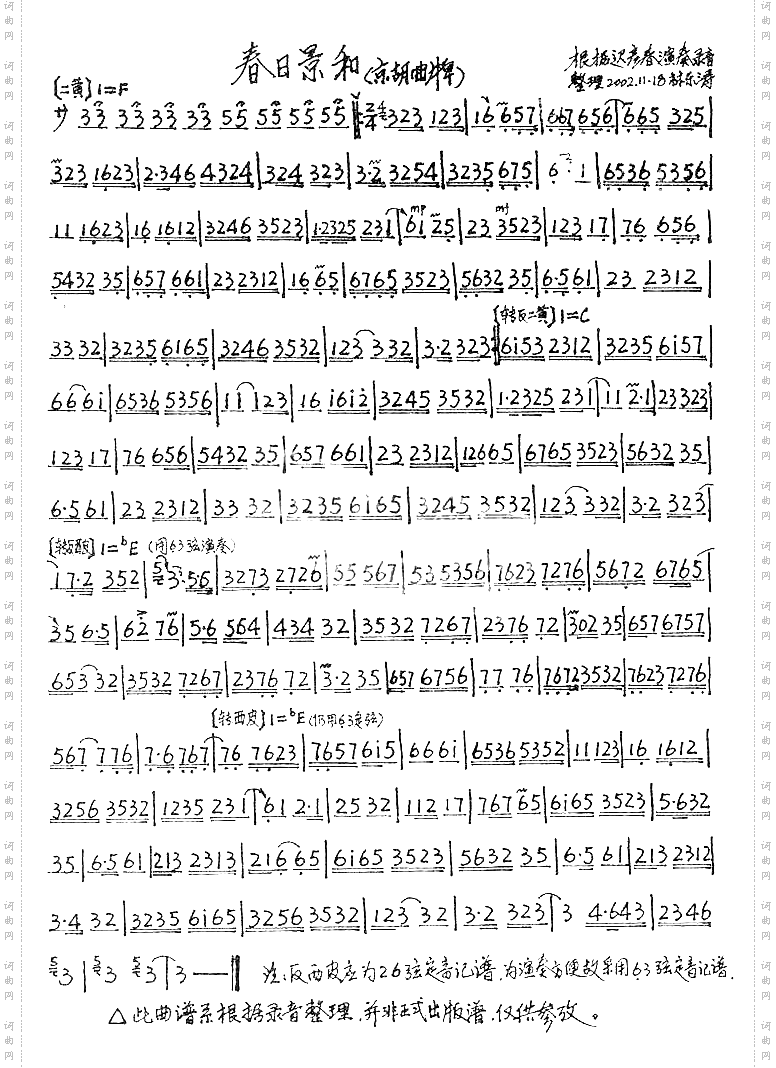 春日景和(京胡曲牌)
根据迟彦春演奏录音
整理2002.11.18林东涛
[二黄] 1=F
サ 33 33 33 33 55 55 55 55 ‖: 2/4 323 123 | 16 657 | 667 656 | 665 325 |
323 1623 | 2·346 4324 | 324 323 | 3·2 3254 | 3235 675 | 6 1 | 6536 5356 |
11 1623 | 16 1612 | 3246 3523 | 1·2325 231 | mp 61 25 | 23 mf 3523 | 123 17 | 76 656 |
5432 35 | 657 661 | 23 2312 | 16 65 | 6765 3523 | 5632 35 | 6·561 | 23 2312 |
[转反二黄] 1=C
33 32 | 3235 6165 | 3246 3532 | 123 332 | 3·2 323 ‖ 6153 2312 | 3235 6157 |
66 61 | 6536 5356 | 11 123 | 16 1612 | 3245 3532 | 1·2325 231 | 11 2·1 | 23 323 |
123 17 | 76 656 | 5432 35 | 657 661 | 23 2312 | 126 65 | 6765 3523 | 5632 35 |
6·5 61 | 23 2312 | 33 32 | 3235 6165 | 3245 3532 | 123 332 | 3·2 323 |
[转反西皮] 1=bE (用63弦演奏)
17·2 352 | 3·56 | 3273 2726 | 55 567 | 53 5356 | 7623 7276 | 5672 6765 |
35 6·5 | 62 76 | 5·6 564 | 434 32 | 3532 7267 | 2376 72 | 302 35 | 657 6757 |
653 32 | 3532 7267 | 2376 72 | 3·2 35 | 657 6756 | 77 76 | 7672 3532 | 7623 7276 |
[转西皮] 1=bE (仍用63定弦)
567 776 | 7·6 767 | 76 7623 | 7657 615 | 66 61 | 6536 5352 | 11 123 | 16 1612 |
3256 3532 | 1235 231 | 61 2·1 | 25 32 | 112 17 | 767 65 | 6165 3523 | 5·632
35 | 6·5 61 | 213 2313 | 216 65 | 6165 3523 | 5632 35 | 6·5 61 | 213 2312
3·4 32 | 3235 6165 | 3256 3532 | 123 32 | 3·2 323 | 3 4·643 | 2346
5 3 | 5 3 5 3 | 3 — ‖ 注:反西皮应为26弦定音记谱,为演奏方便故采用63弦定音记谱.
△此曲谱系根据录音整理,并非正式出版谱,仅供参考。
词曲网